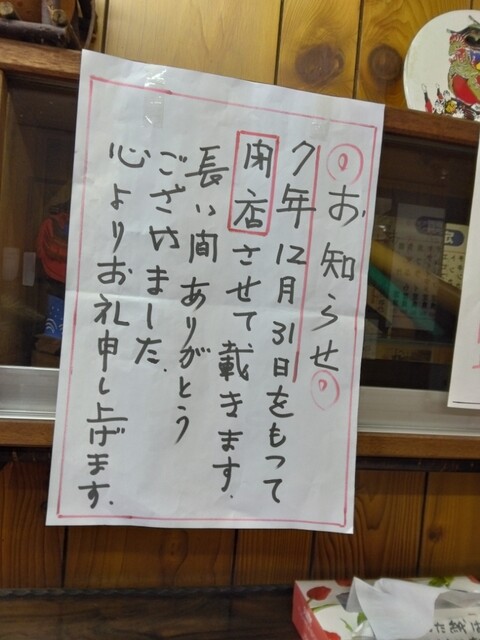 お知らせ
7年12月31日をもって
閉店させて載きます.
長い間ありがとう
ございました.
心よりお礼申し上げます.